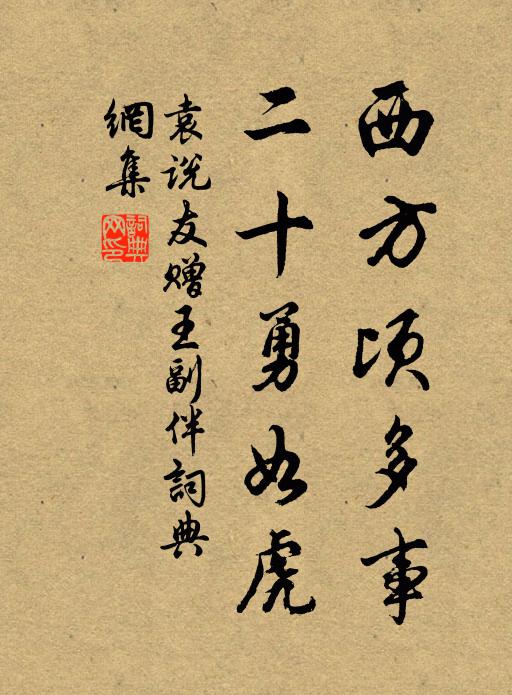 西方頃多事
二十勇如虎
袁说友赠王副伴詞典
網集
詞典
网印